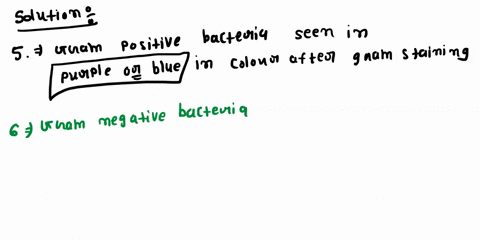 Solution:
5. ⇒ Gram positive bacteria seen in
purple or blue in colour after gram staining
6 ⇒ Gram negative bacteria